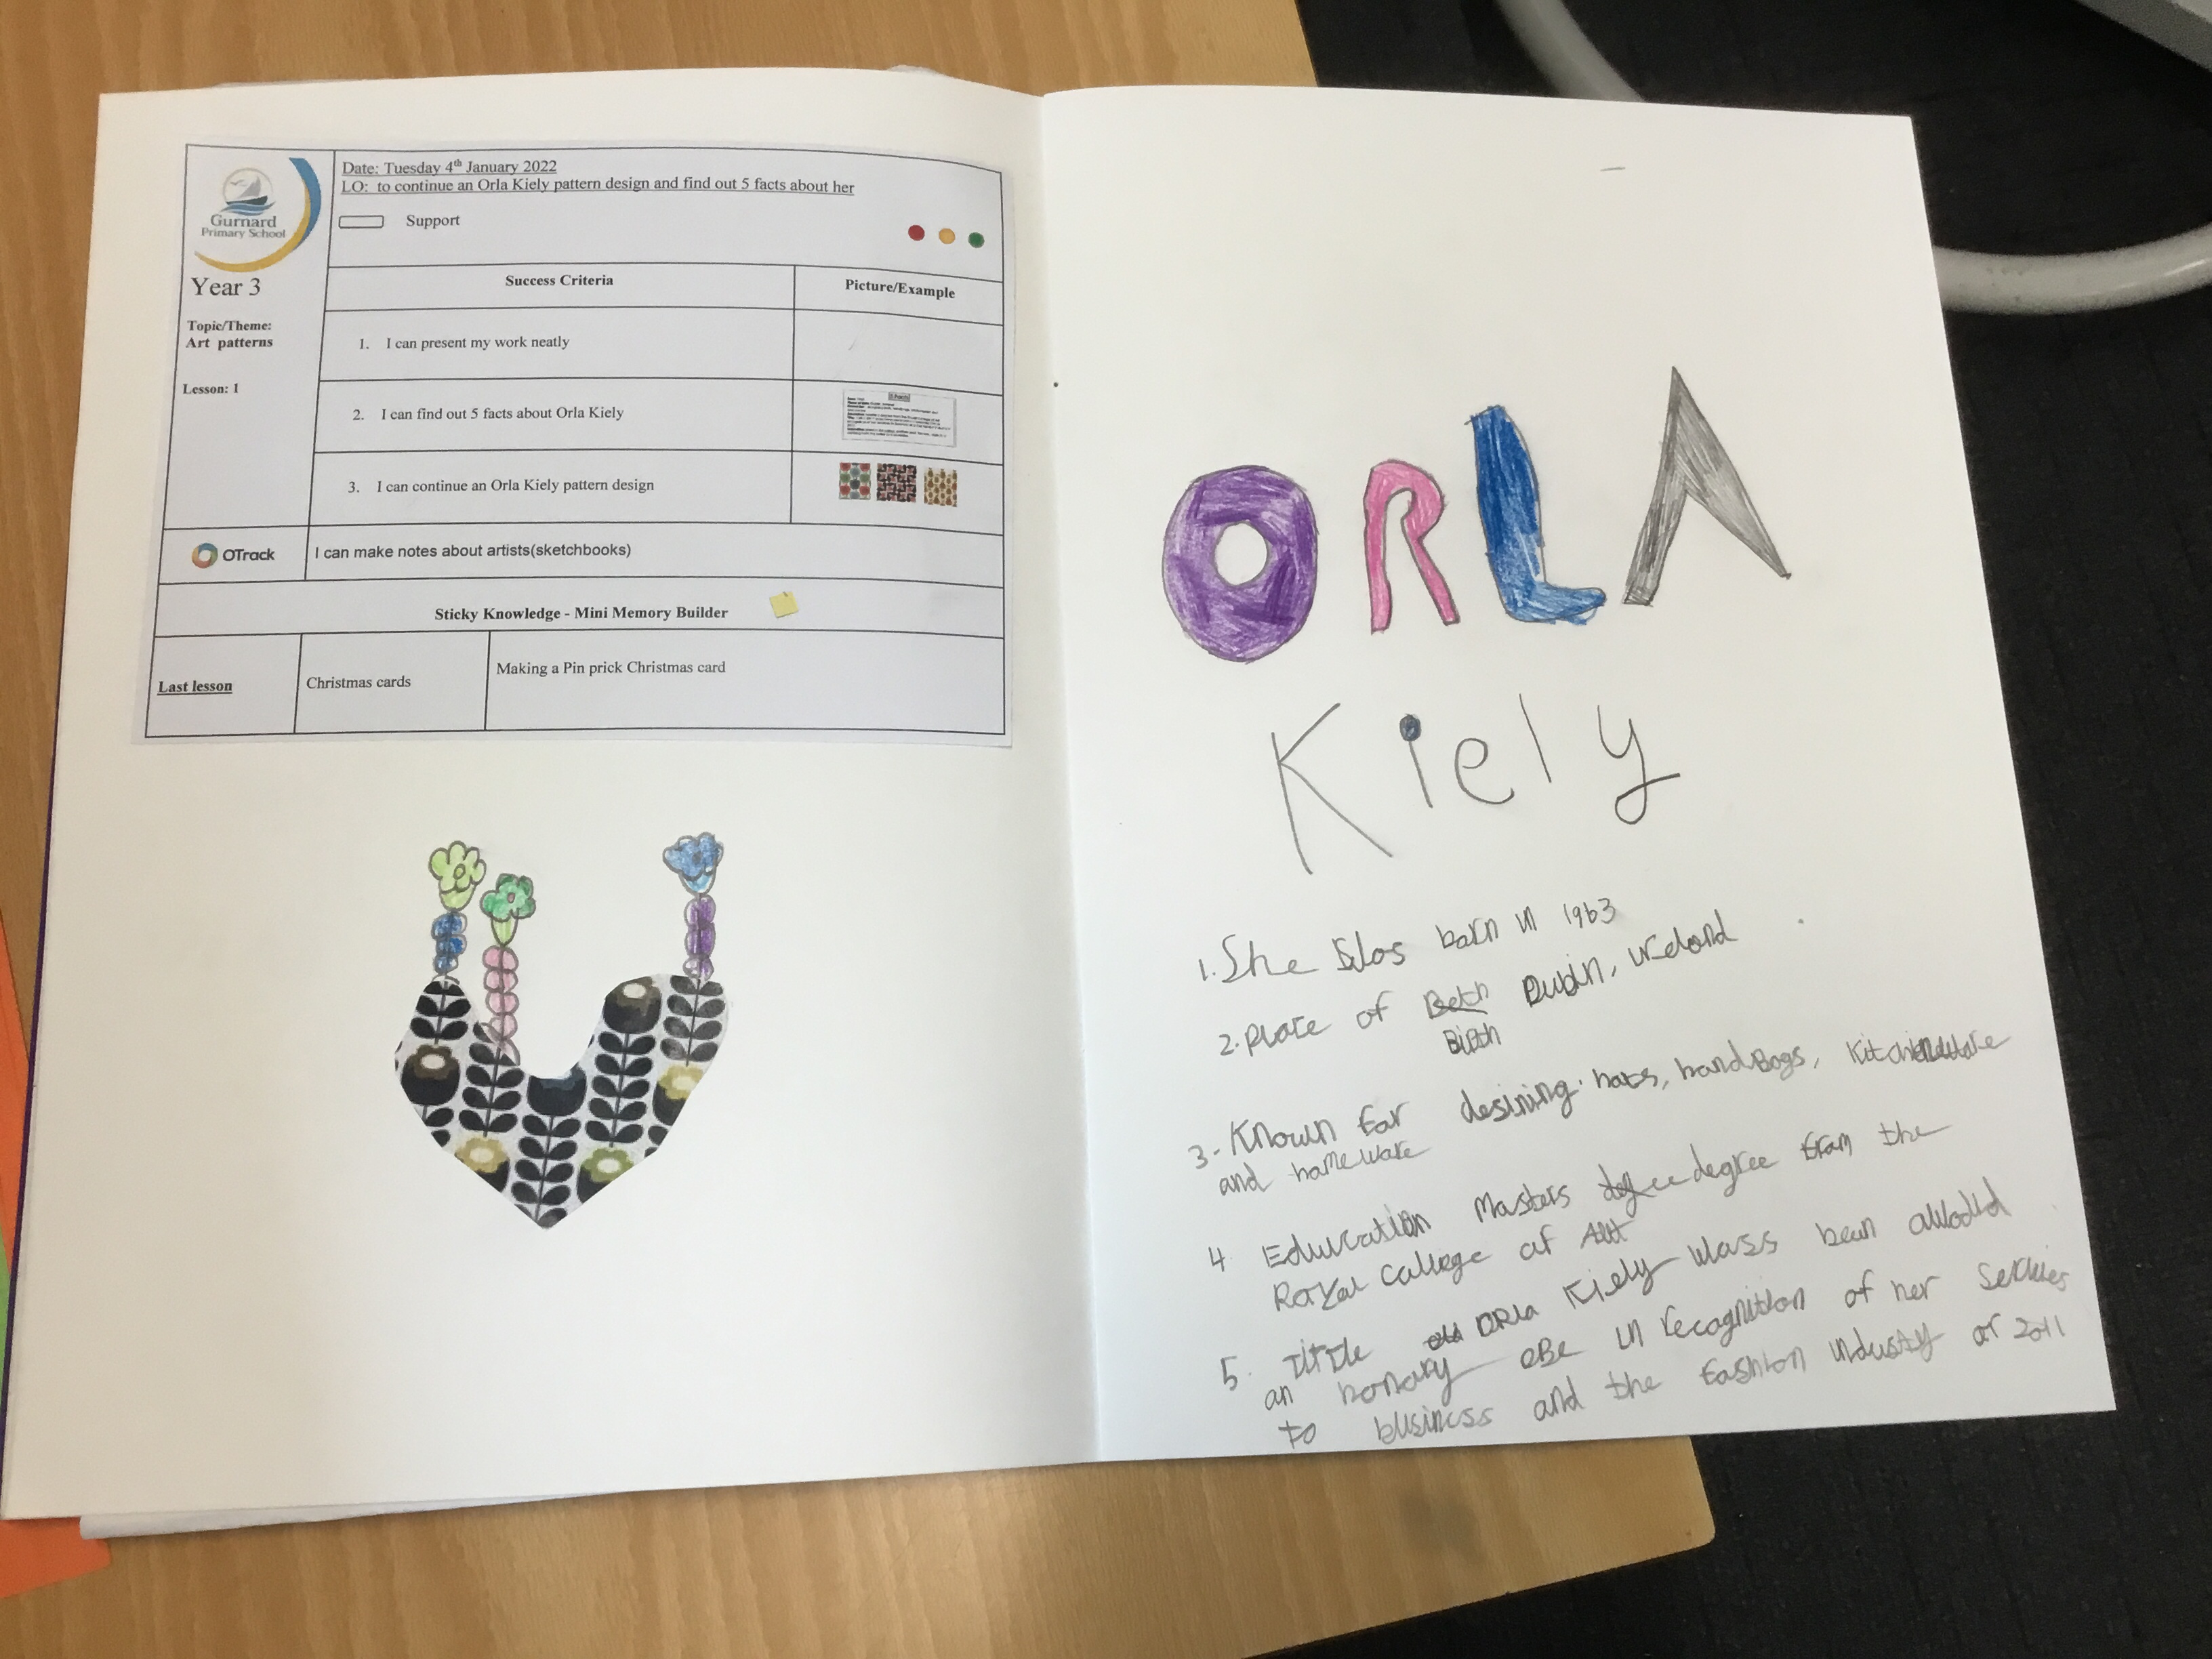 Gurnard
Primary School
Year 3
Topic/Theme:
Art patterns
Lesson: 1
Date: Tuesday 4th January 2022
LO: to continue an Orla Kiely pattern design and find out 5 facts about her
Support
Success Criteria
Picture/Example
1. I can present my work neatly
2. I can find out 5 facts about Orla Kiely
3. I can continue an Orla Kiely pattern design
OTrack
I can make notes about artists(sketchbooks)
Sticky Knowledge - Mini Memory Builder
Last lesson
Christmas cards
Making a Pin prick Christmas card
ORLA
Kiely
1. She Was born in 1963
2. Place of Birth Dublin, ireland
3. Known for desining hats, handBags, Kitchenware
and homeware
4 Education Masters degree from the
Royal College of Art
5. Title ORla Kiely wass been
an honary OBE in recognition of her
to business and the fashion industry of 2011